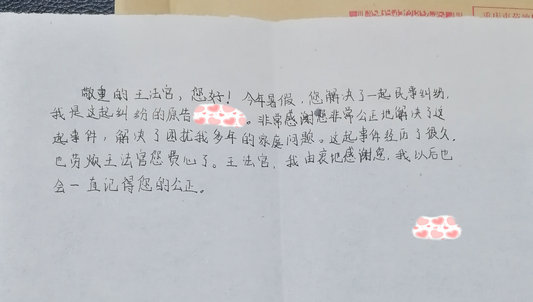 敬重的王法官，您好！今年暑假，您解决了一起民事纠纷，
我是这起纠纷的原告。非常感谢您非常公正地解决了这
起事件，解决了困扰我多年的家庭问题。这起事件经历了很久，
也劳烦王法官您费心了。王法官，我由衷地感谢您，我以后也
会一直记得您的公正。